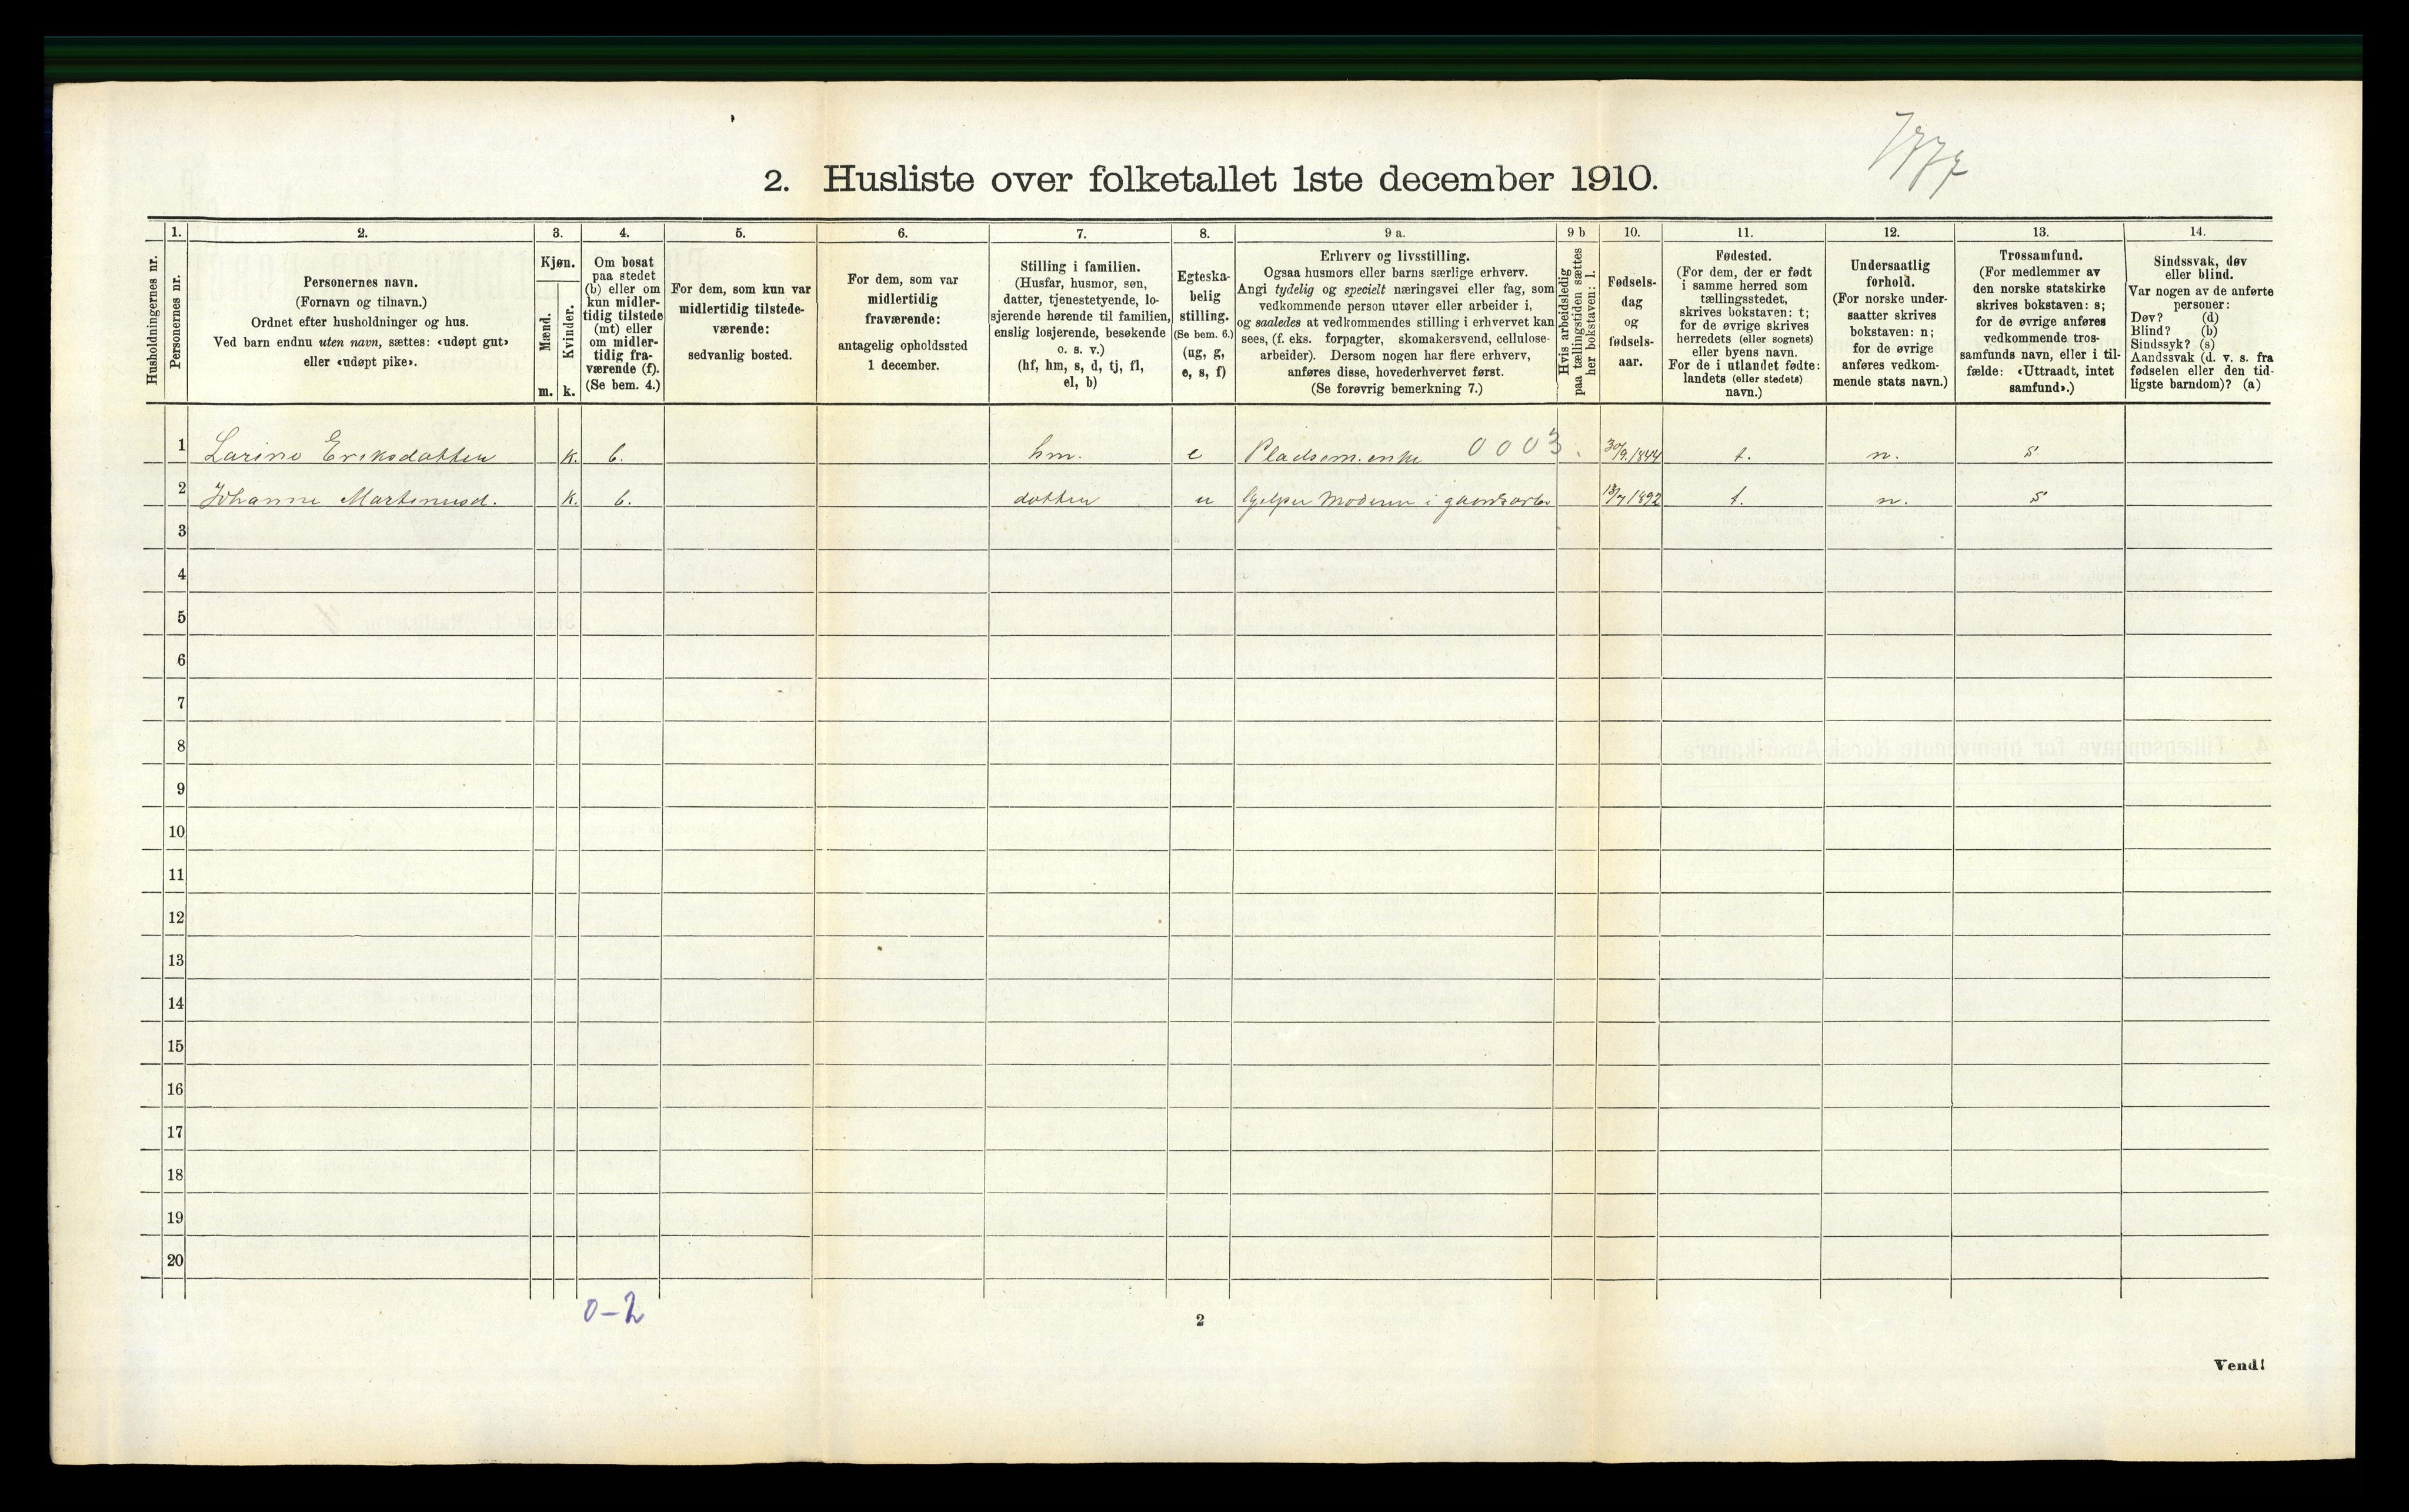 2. Husliste over folketallet 1ste december 1910.
Husholdningernes nr.
1.
Personernes nr.
2.
Personernes navn.
(Fornavn og tilnavn.)
Ordnet efter husholdninger og hus.
Ved barn endnu uten navn, sættes: «udøpt gut»
eller «udøpt pike».
3.
Kjøn.
Mænd.
m.
Kvinder.
k.
4.
Om bosat
paa stedet
(b) eller om
kun midler-
tidig tilstede
(mt) eller
om midler-
tidig fra-
værende (f).
(Se bem. 4.)
5.
For dem, som kun var
midlertidig tilstede-
værende:
sedvanlig bosted.
6.
For dem, som var
midlertidig
fraværende:
antagelig opholdssted
1 december.
7.
Stilling i familien.
(Husfar, husmor, søn,
datter, tjenestetyende, lo-
sjerende hørende til familien,
enslig losjerende, besøkende
o. s. v.)
(hf, hm, s, d, tj, fl,
el, b)
8.
Egteska-
belig
stilling.
(Se bem. 6.)
(ug, g,
e, s, f)
9 a.
Erhverv og livsstilling.
Ogsaa husmors eller barns særlige erhverv.
Angi tydelig og specielt næringsvei eller fag, som
vedkommende person utøver eller arbeider i,
og saaledes at vedkommendes stilling i erhvervet kan
sees, (f. eks. forpagter, skomakersvend, cellulose-
arbeider). Dersom nogen har flere erhverv,
anføres disse, hovederhvervet først.
(Se forøvrig bemerkning 7.)
9 b
Hvis arbeidsledig
paa tællingstiden sættes
her bokstaven: l.
10.
Fødsels-
dag
og
fødsels-
aar.
11.
Fødested.
(For dem, der er født
i samme herred som
tællingsstedet,
skrives bokstaven: t;
for de øvrige skrives
herredets (eller sognets)
eller byens navn.
For de i utlandet fødte:
landets (eller stedets)
navn.)
12.
Undersaatlig
forhold.
(For norske under-
saatter skrives
bokstaven: n;
for de øvrige
anføres vedkom-
mende stats navn.)
13.
Trossamfund.
(For medlemmer av
den norske statskirke
skrives bokstaven: s;
for de øvrige anføres
vedkommende tros-
samfunds navn, eller i til-
fælde: «Uttraadt, intet
samfund».)
14.
Sindssvak, døv
eller blind.
Var nogen av de anførte
personer:
Døv? (d)
Blind? (b)
Sindssyk? (s)
Aandssvak (d. v. s. fra
fødselen eller den tid-
ligste barndom)? (a)
1 Larine Eriksdatter k. b. hm. e Pladsem. enke 0003 30/9.1844 t. n. s
2 Johanne Martinusd. k. b. datter u hjelper Moderen i 1892 t. n. s
3
4
5
6
7
8
9
10
11
12
13
14
15
16
17
18
19
20
0-2
2
Vend!